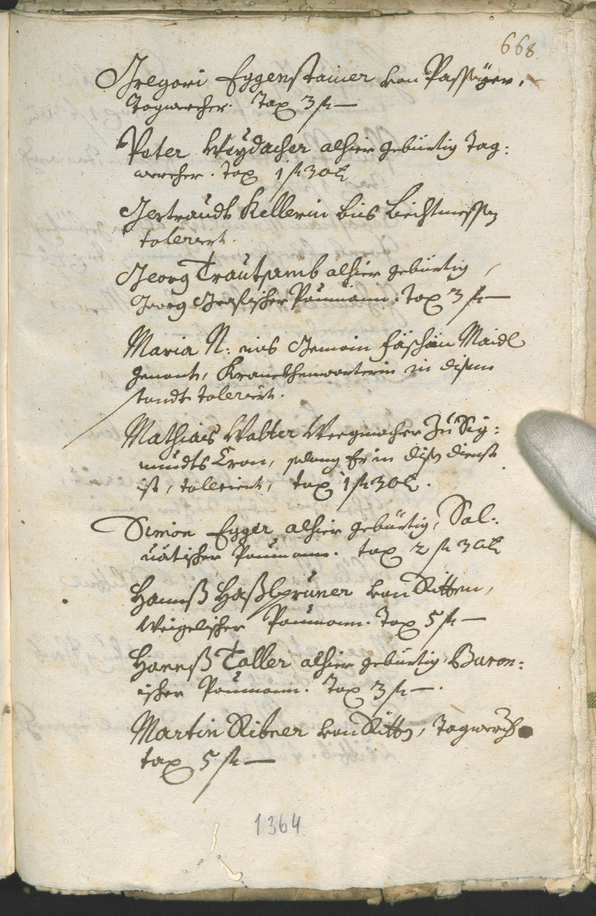 668
Gregori Eggenstainer von Passeyer,
Tagwercher. Tax 3 fl —
Peter Weydacher alhier gebürtig Tag:
wercher. Tax 1 fl 30 k
Gertraudt Kellerin bis Liechtmessen
tolerirt.
Georg Trautsamb alhier gebürtig,
Georg Paumann: Tax 3 fl —
Maria N: ins Gemain Maidl
genant, in disem
standt tolerirt.
Mathias Walter Weegmacher zu Sig:
mundts Cron, solang Er in diss dienst
ist, tollerirt, tax 1 fl 30 k.
Simon Egger alhier gebürtig, Sal:
Paumann. tax 2 fl 30 k
Hannß Haßlpruner von Ritten,
Weigelischer Paumann. Tax 5 fl —
Hannß Taller alhier gebürtig, Baron:
ischer Paumann. Tax 3 fl —.
Martin Ribner von Ritten, Tagwerch
tax 5 fl —
1364